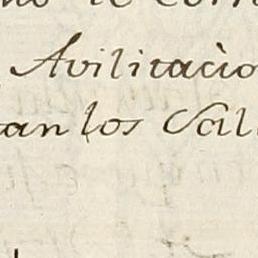 Avilitacio
tan los Sal